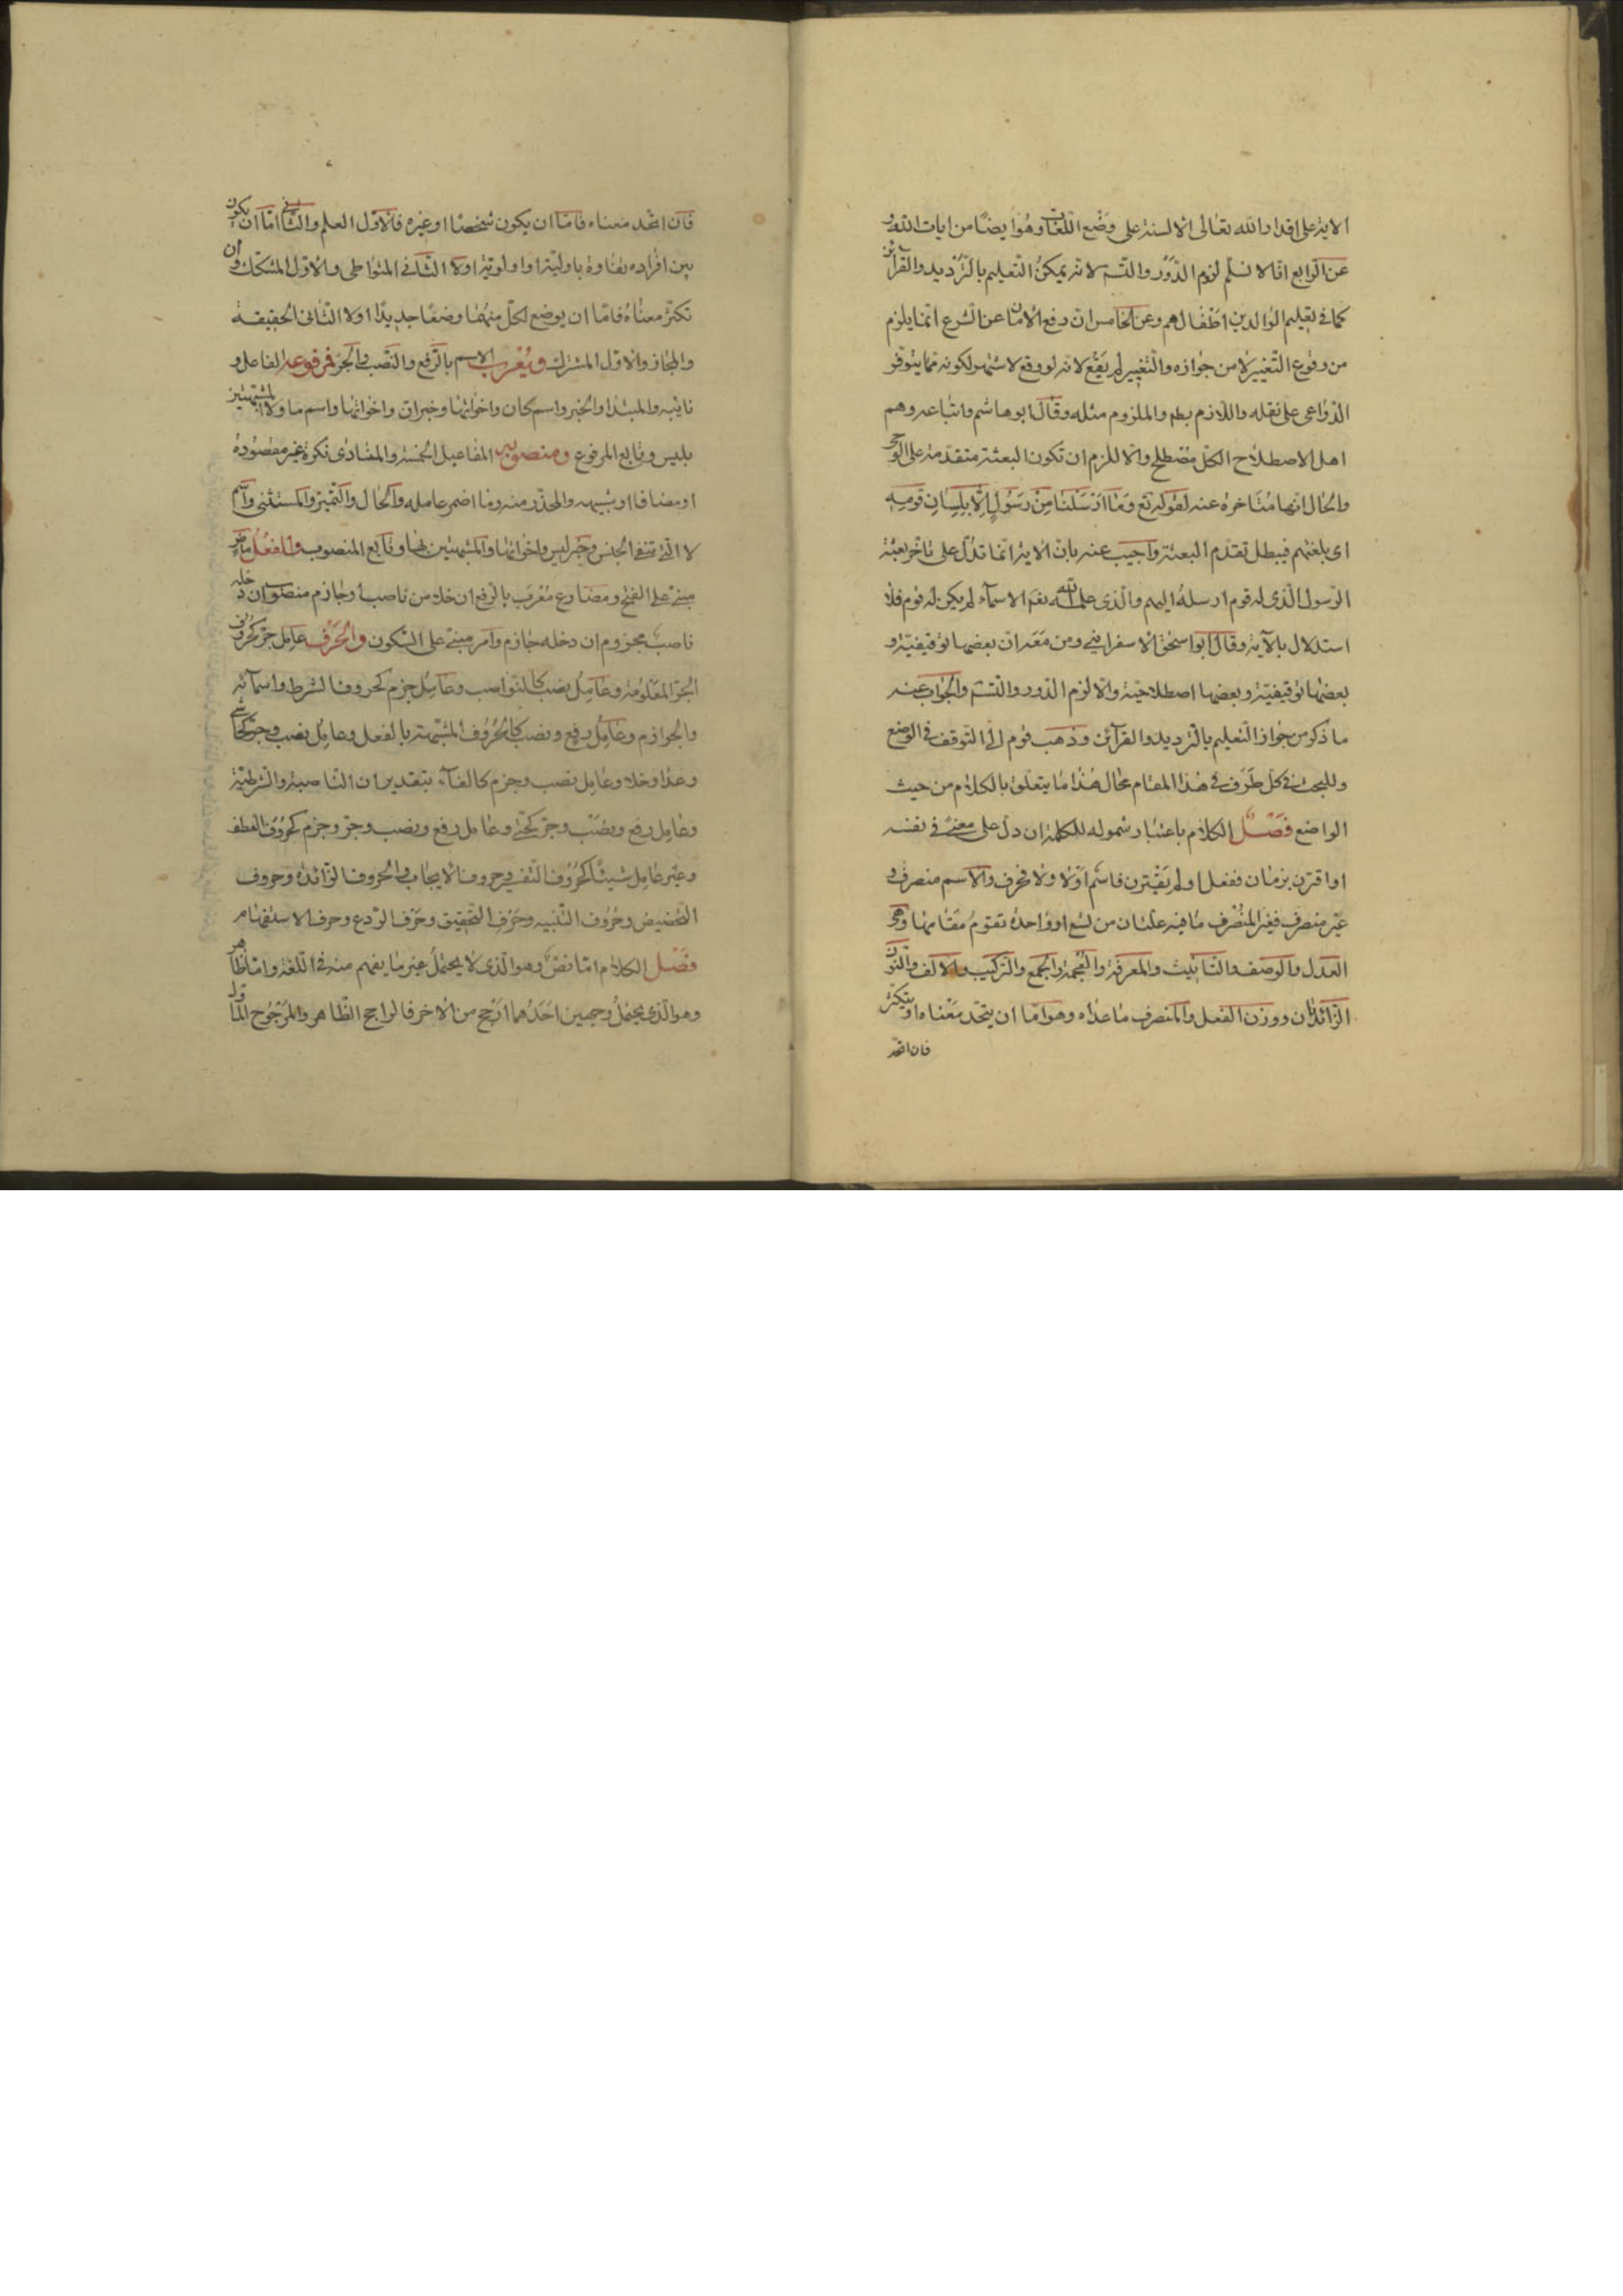 الاية على اقدار الله تعالى الالسنة على وضع اللغات وهو ايضا من ايات الله و
عن الرابع انا لا نسلم لزوم الدور والتسـ لانه يمكن التعليم بالترديد والقرائن
كما في تعليم الوالدين اطفالهم وعن الخامس ان دفع الامان عن الشرع انما يلزم
من وقوع التغيير لا من جوازه والتغيير لم يقع لانه لو وقع لاشتهر لكونه مما يتوفر
الدواعى على نقله واللازم بط والملزوم مثله وقال ابو هاشم واتباعه وهم
اهل الاصطلاح الكل مصطلح والا للزم ان تكون البعثة متقدمة على الوحى
والحال انها متاخرة عنه لقوله تع وما ارسلنا من رسول الا بلسان قومه
اى بلغتهم فيبطل تقدم البعثة واجيب عنه بان الاية انما تدل على تاخر بعثة
الرسول الذى له قوم ارسله اليهم والذى علمه الله تعم الاسماء لم يكن له قوم فلا
استدلال بالآية وقال ابو اسحق الاسفراينى ومن معه ان بعضها توقيفية و
بعضها توقيفية وبعضها اصطلاحية والا لزم الدور والتسـ والجواب عنه
ما ذكر من جواز التعليم بالترديد والقرآئن وذهب قوم الى التوقف في الوضع
وللبحث في كل طرف في هذا المقام مجال هذا ما يتعلق بالكلام من حيث
الواضع فصل الكلام باعتبار شموله للكلمة ان دل على معنى في نفسه
او اقترن بزمان ففعل او لم يقترن فاسم اولا ولا فحرف والاسم منصرف و
غير منصرف فغير المنصرف ما فيه علتان من تسع او واحدة تقوم مقامها وهى
العدل والوصف والتانيث والمعرفة والعجمة والجمع والتركيب والالف والنون
الزائدتان ووزن الفعل والمنصرف ما عداه وهو اما ان يتحد معناه او يتكثر
فان اتحد
فان اتحد معناه فاما ان يكون شخصا او غيره فالاول العلم والثانى اما ان يكون
بين افراده تفاوة باولية او اولوية او لا الثانى المتواطى والاول المشكك وان
تكثر معناه فاما ان يوضع لكل منهما وضعا جديدا او لا الثانى الحقيقة
والمجاز والاول المشترك ويعرب الاسم بالرفع والنصب والجر فمرفوعه الفاعل و
نايبه والمبتدا والخبر واسم كان واخواتها وخبر ان واخواتها واسم ما ولا المشبهتين
بليس وتابع المرفوع ومنصوبه المفاعيل الخمسة والمنادى نكرة غير مقصودة
او مضافا او شبيهه والمحذر منه وما اضمر عامله والحال والتميز والمستثنى واسم
لا التى لنفى الجنس وخبر ليس واخواتها والمشبهتين بها وتابع المنصوب والفعل ماض
مبنى على الفتح ومضارع معرب بالرفع ان خلا من ناصب وجازم منصوب ان دخله
ناصب مجزوم ان دخله جازم وامر مبنى على السكون والحرف عامل جر كحروف
الجر المعلومة وعامل نصب كالنواصب وعامل جزم كحروف الشرط واسمائه
والجوازم وعامل رفع ونصب كالحروف المشبهة بالفعل وعامل نصب وجر كحاشا
وعدا وخلا وعامل نصب وجزم كالفآء بتقدير ان الناصبة والشرطية
وعامل رفع ونصب وجر كحتى وعامل رفع ونصب وجر وجزم كحروف العطف
وغير عامل شيئا كحروف النفى وحروف الايجاب والحروف الزائدة وحروف
التحضيض وحروف التنبيه وحرف التحقيق وحرف الردع وحرف الاستفهام
فصل الكلام اما نص وهو الذى لا يحتمل غير ما يفهم منه في اللغة واما ظاهر
وهو الذى يحتمل وجهين احدهما ارجح من الاخر فالراجح الظاهر والمرجوح الماول